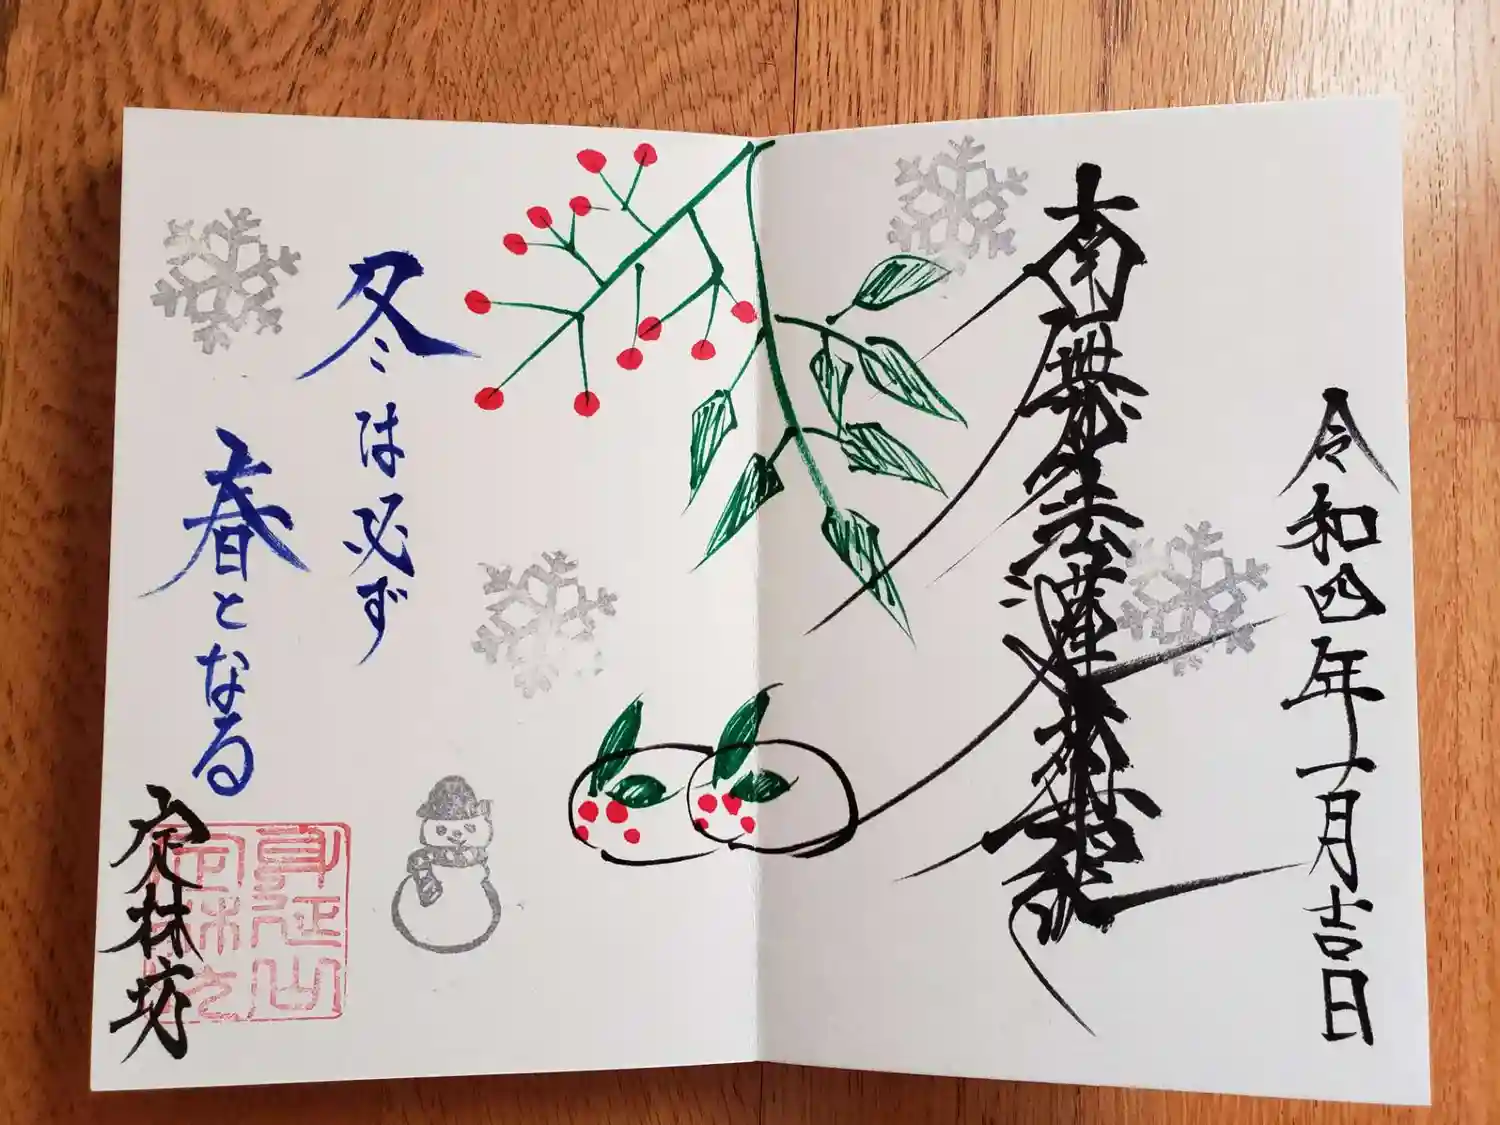 令和四年一月吉日
南無妙法蓮華経
冬は必ず
春となる
定林坊
身延山
定林坊